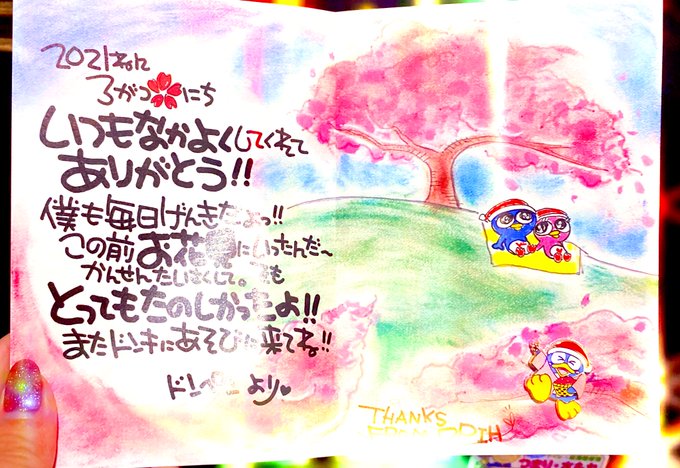 2021ねん
3がつ にち
いつもなかよくしてくれて
ありがとう!!
僕も毎日げんきだよっ!!
この前お花見にいったんだ〜
かんせんたいさくして。でも
とってもたのしかったよ!!
またドンキにあそびに来てね!!
ドンペンより
THANKS